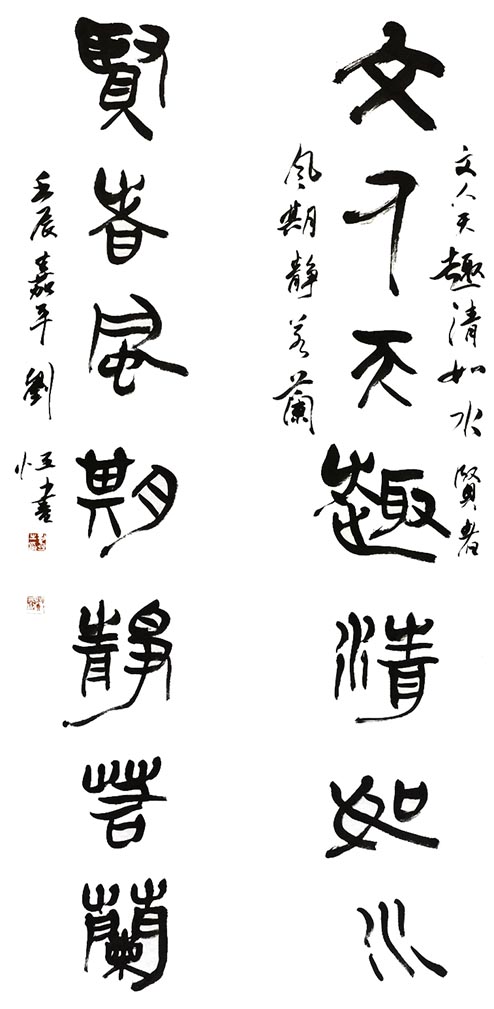 文人天趣清如水
賢者風期靜若蘭
文人天趣清如水 賢者
風期靜若蘭
壬辰嘉平 劉恒書